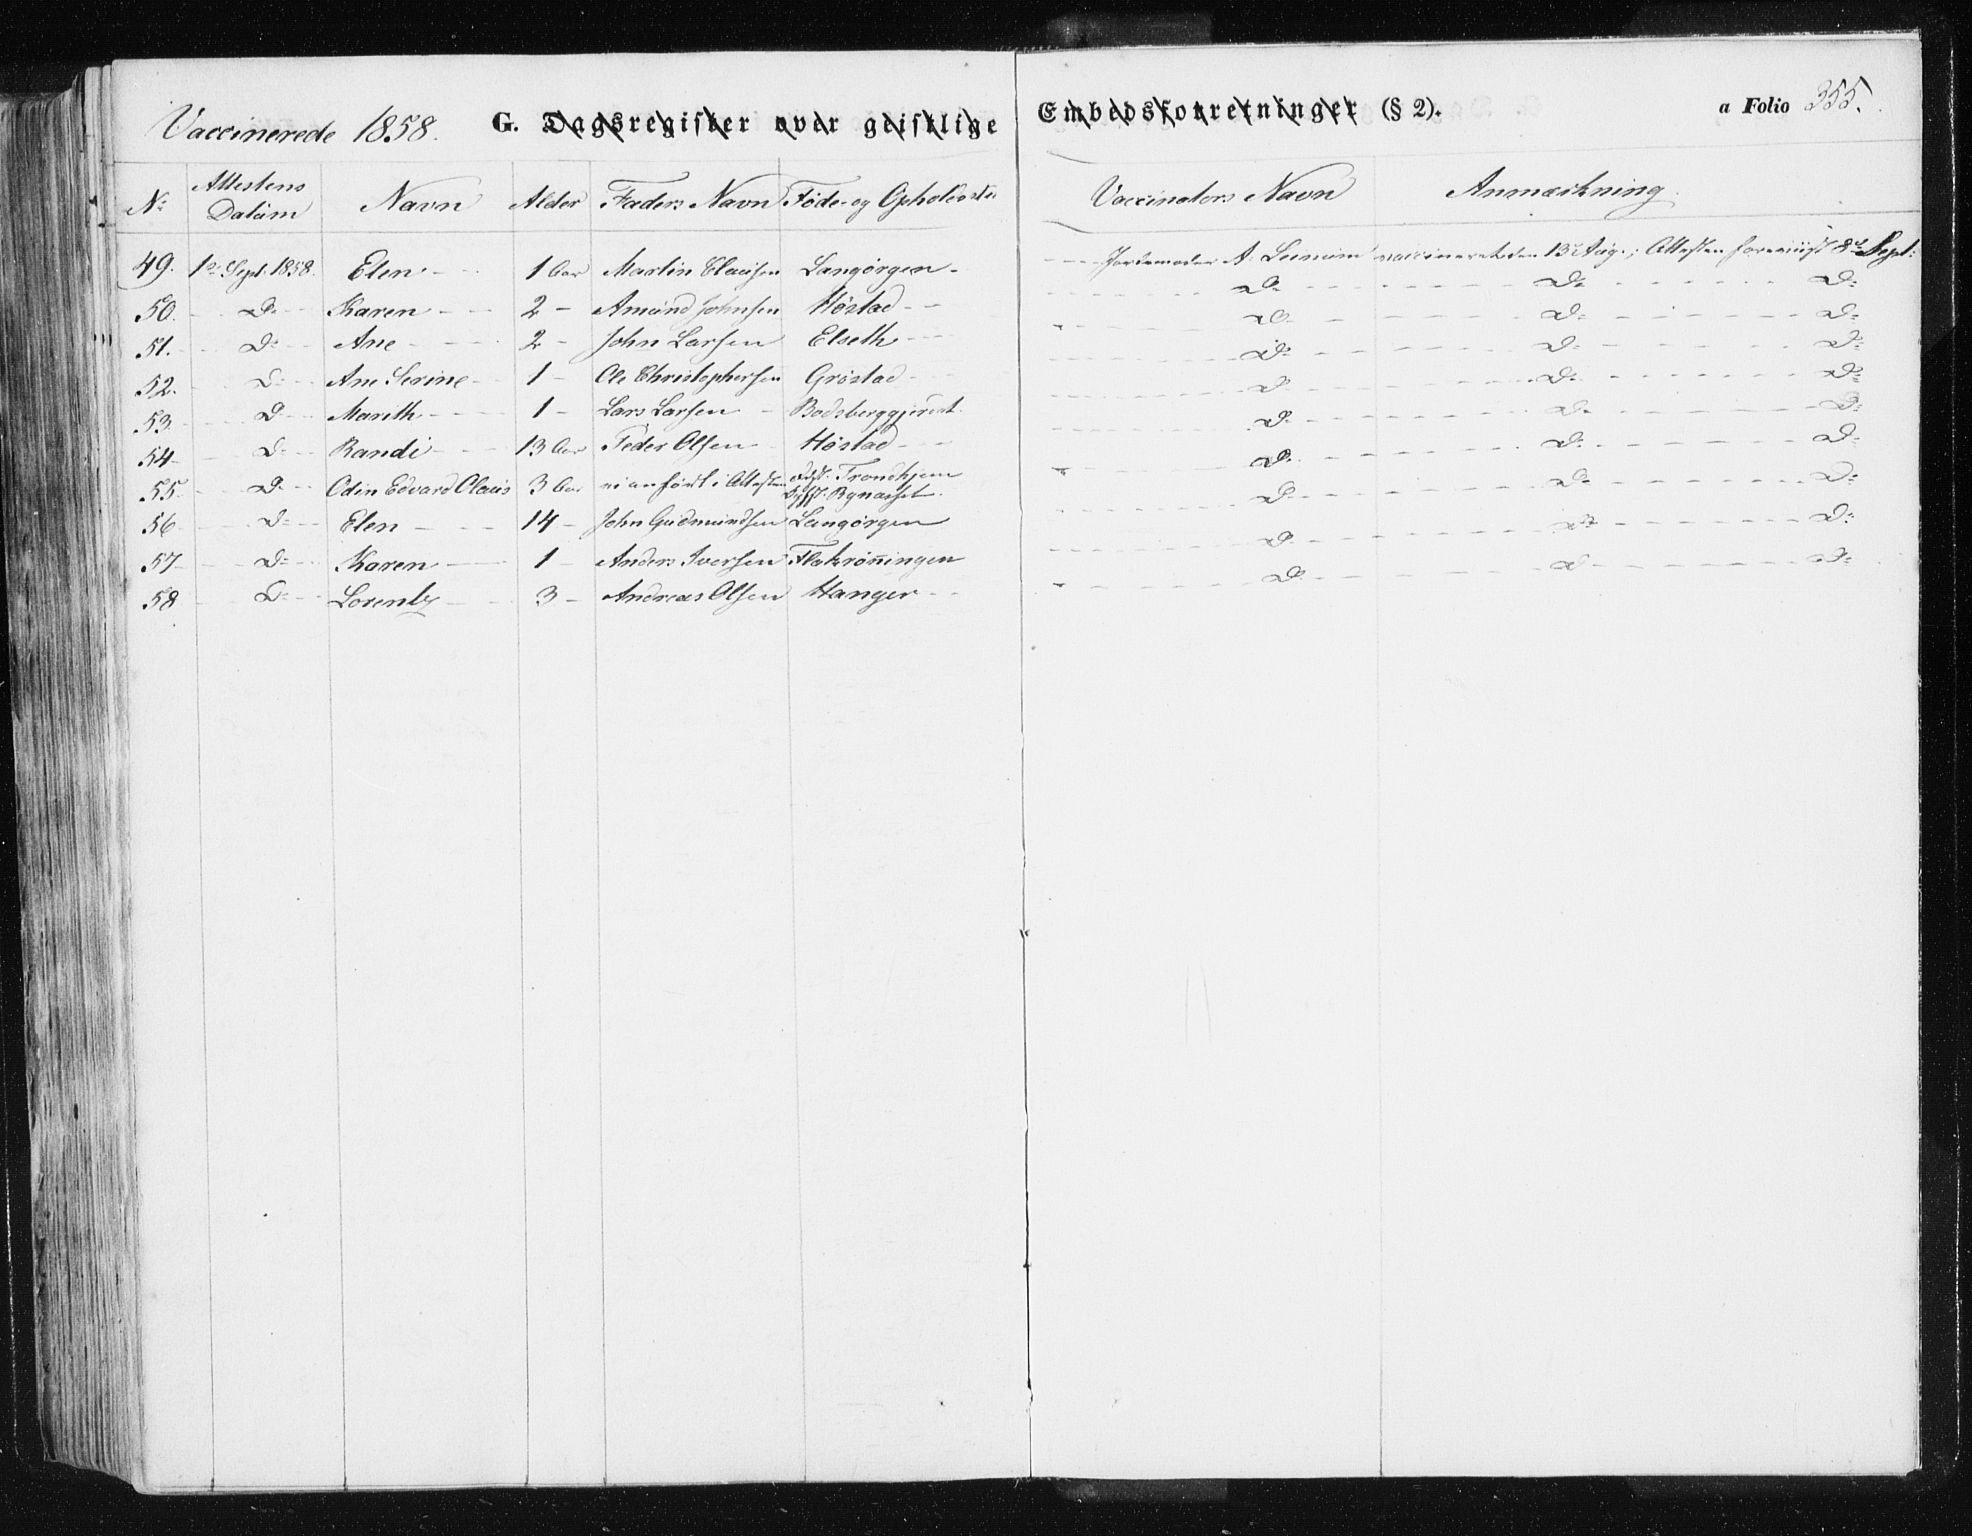 Vaccinerede 1858. G. Dagsregister over geistlige Embedsforretninger (§ 2). a Folio 355.
No Attestens Datum Navn Alder Faders Navn Føde- og Opholdsted Vaccinators Navn Anmærkning
49. 1ste Sept. 1858. Elen 1 Aar Martin Clausen Langørgen Jordemoder A. vaccineret den 13de Aug.; Attesten foreviist 8de Sept:
50. Do Karen 2 - Amund Johnsen Høstad Do Do Do
51. Do Ane 2 - John Larsen Elseth Do Do Do
52. Do Ane Serine 1 - Ole Christophersen Grøstad Do Do Do
53. Do Marith 1 - Lars Larsen Bodsberggjerdet Do Do Do
54 Do Randi 13 Aar Peder Olsen Høstad Do Do Do
55. Do Odin Edvard Olaus 3 Aar ei anført i Attesten Fdst. Trondhjem Opst. Bynæsset. Do Do Do
56 Do Elen 14 - John Gudmundsen Langørgen Do Do Do
57 Do Karen 1 - Anders Iversen Flakrønningen Do Do Do
58 Do Lorentz 3 - Andreas Olsen Hanger Do Do Do